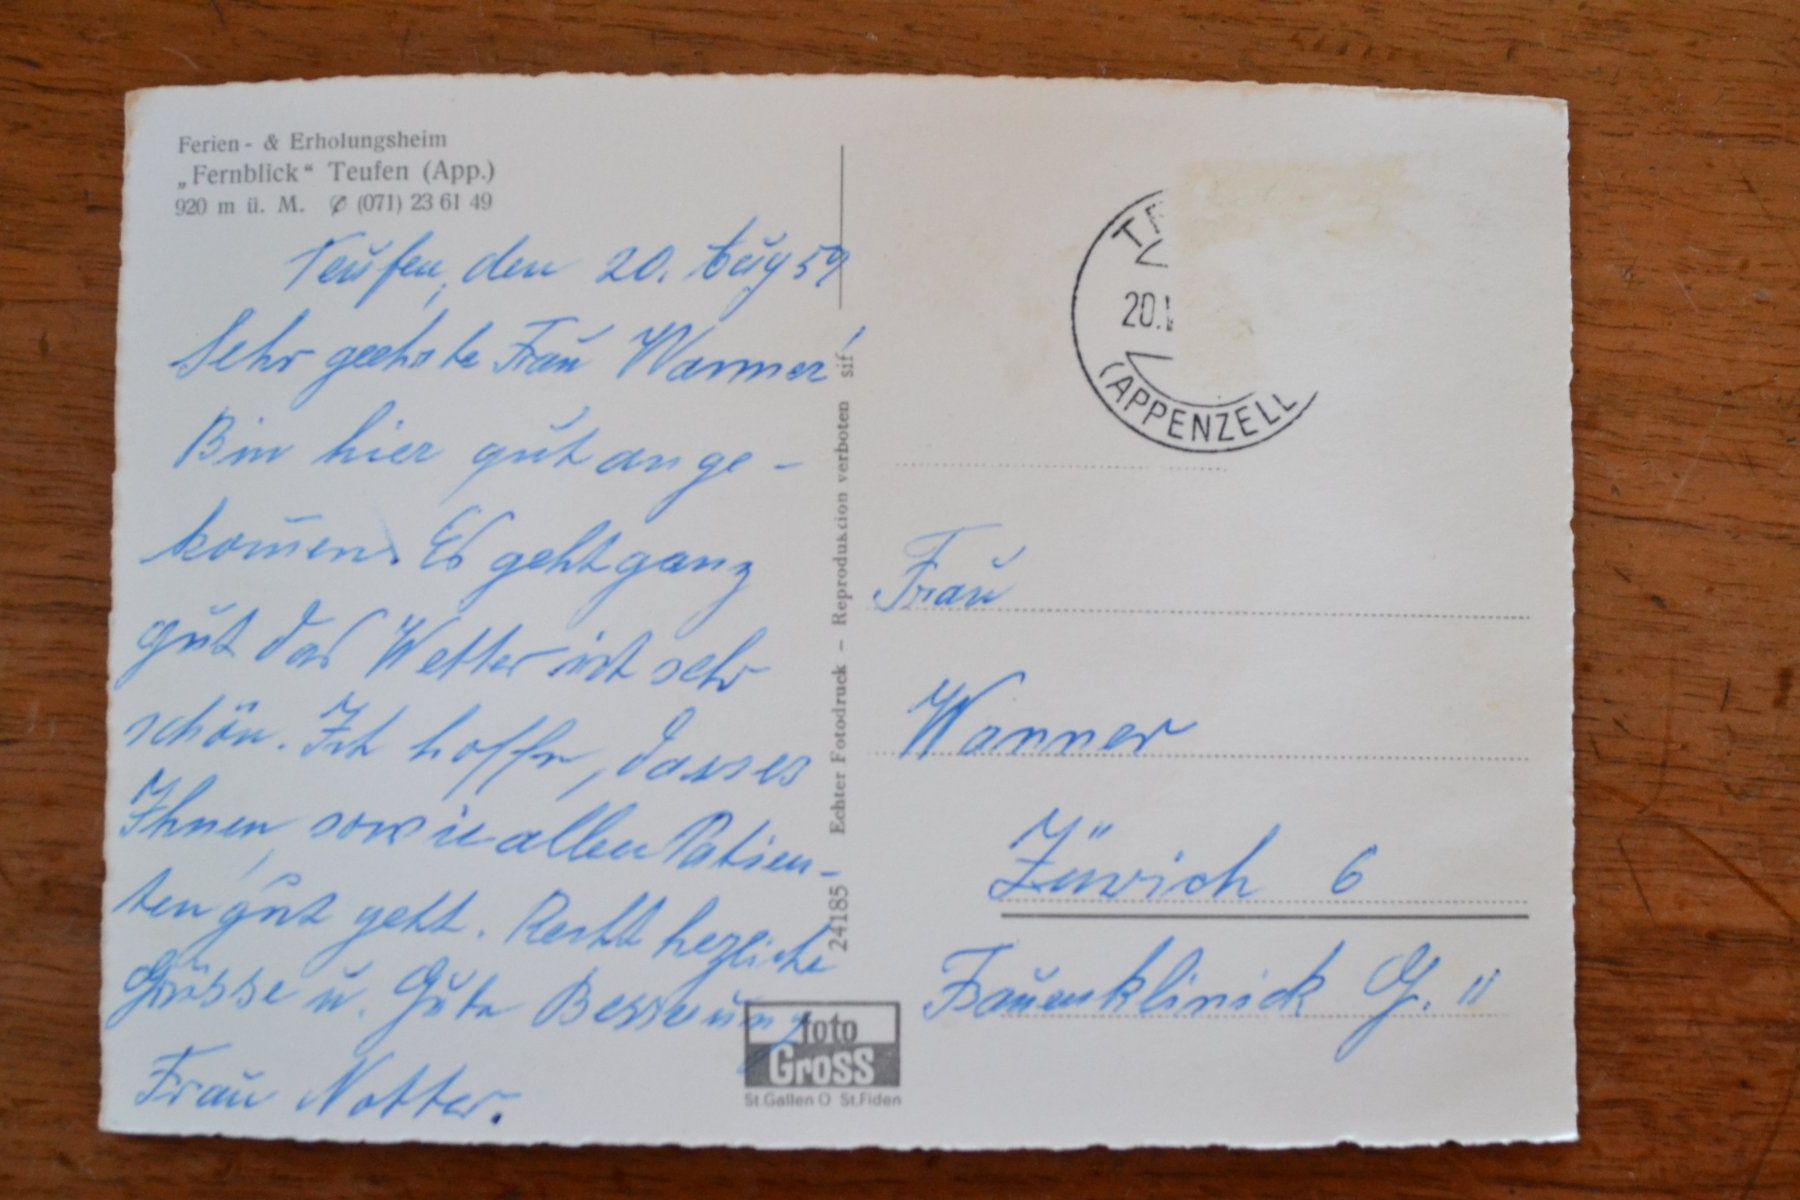 Ferien- & Erholungsheim
„Fernblick“ Teufen (App.)
920 m ü. M. ✆ (071) 23 61 49
Teufen, den 20. Aug 59
Sehr geehrte Frau Wanner!
Bin hier gut ange-
komen. Es geht ganz
gut das Wetter ist sehr
schön. Ich hoffe, dass es
Ihnen, sowie allen Patien-
ten gut geht. Recht herzliche
Grüsse u. Gute Besserung
Frau Notter.
24185 Echter Fotodruck – Reproduktion verboten sif
foto
Gross
St.Gallen O St.Fiden
20.
(APPENZELL
Frau
Wanner
Zürich 6
Frauenklinick G. II